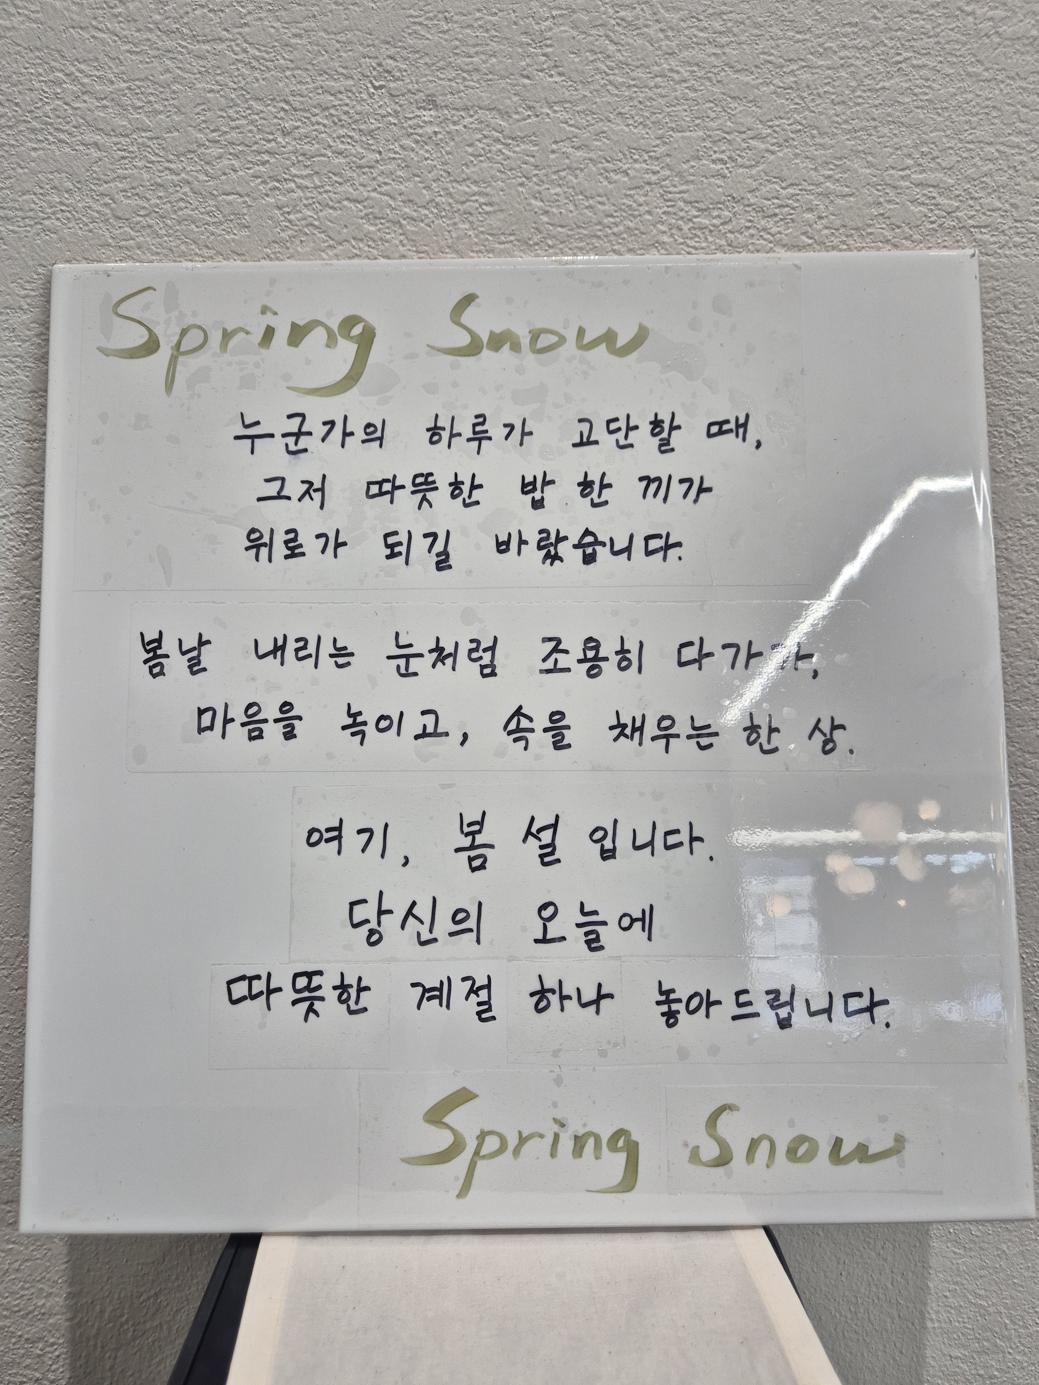 Spring Snow
누군가의 하루가 고단할 때,
그저 따뜻한 밥 한 끼가
위로가 되길 바랐습니다.
봄날 내리는 눈처럼 조용히 다가가,
마음을 녹이고, 속을 채우는 한 상.
여기, 봄 설 입니다.
당신의 오늘에
따뜻한 계절 하나 놓아드립니다.
Spring Snow